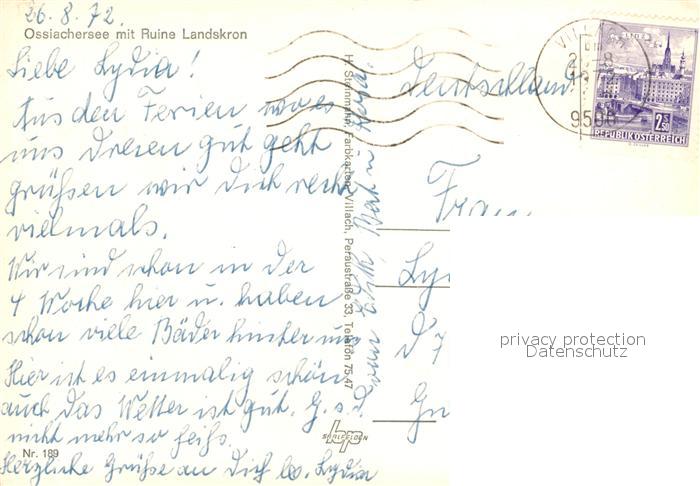 26.8.72.
Ossiachersee mit Ruine Landskron
Liebe Lydia!
Aus den Ferien wo es
uns dreien gut geht
grüßen wir Dich recht
vielmals.
Wir sind schon in der
4 Woche hier u. haben
schon viele Bäder hinter uns
Hier ist es einmalig schön
auch das Wetter ist gut. G. s. d.
nicht mehr so heiß.
Nr. 189
Herzliche Grüße an Dich lb. Lydia
H. Steinmann, Farbkarten, Villach, Peraustraße 33, Telefon 75 47
bp
SAALFELDEN
Deutschland
Frau
Ly
d 7
VIL
9500
LINZ
2.50
S
REPUBLIK ÖSTERREICH
privacy protection
Datenschutz